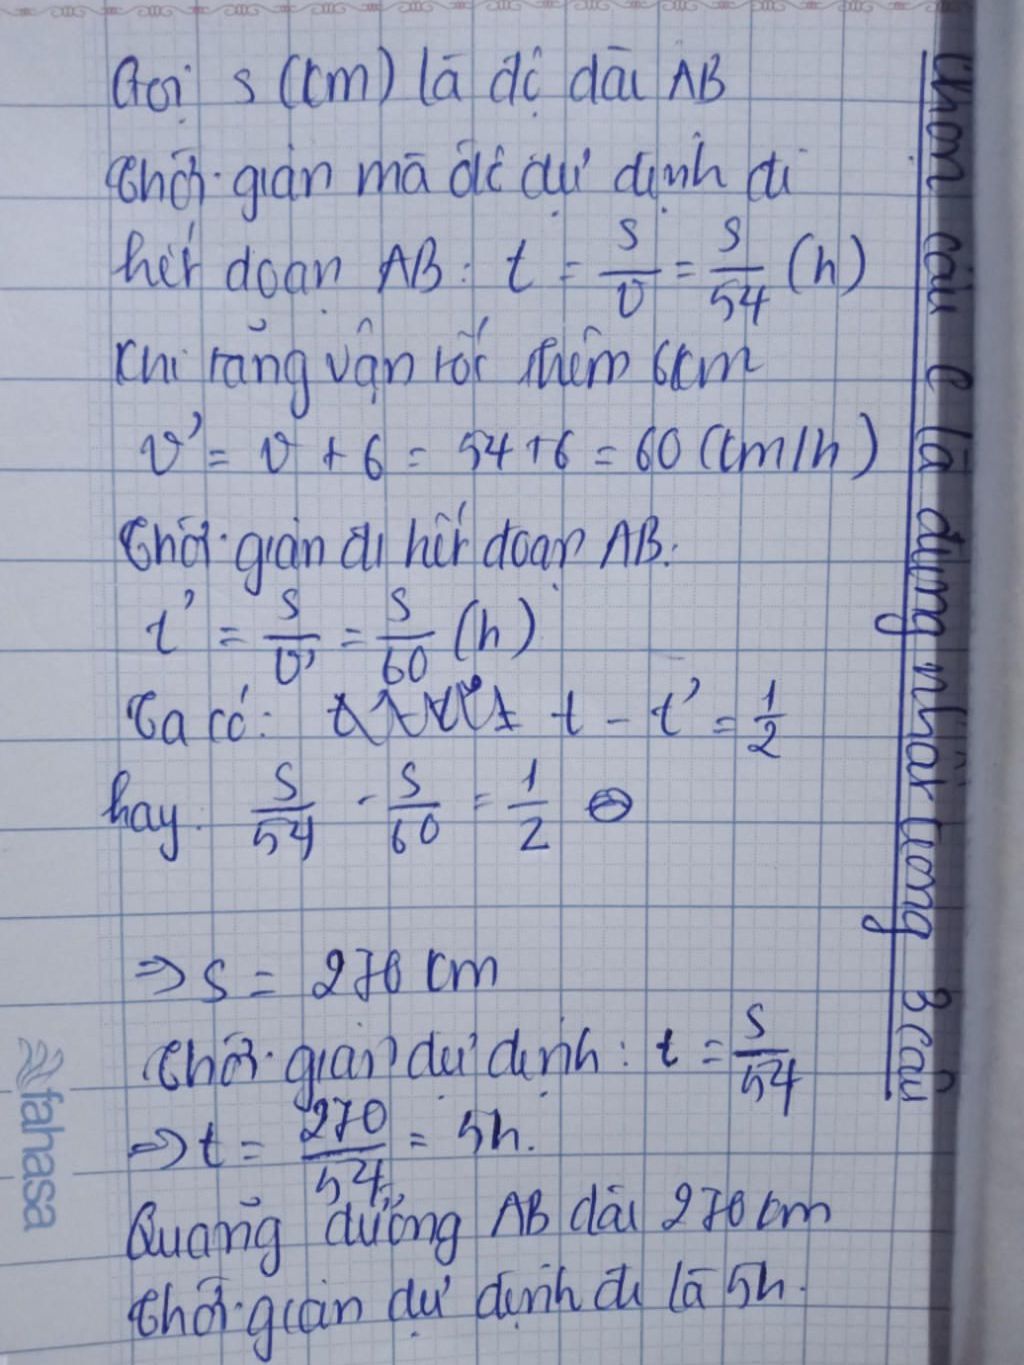 Gọi s (km) là độ dài AB
Thời gian mà ôtô dự định đi
hết đoạn AB: t = s/v = s/54 (h)
Khi tăng vận tốc thêm 6km
v' = v + 6 = 54+6 = 60 (km/h)
Thời gian đi hết đoạn AB:
t' = s/v' = s/60 (h)
Ta có: t - t' = 1/2
hay: s/54 - s/60 = 1/2
=> s = 270 km
Thời gian dự định: t = s/54
=> t = 270/54 = 5h.
Quãng đường AB dài 270 km
Thời gian dự định đi là 5h.
Chọn câu e là đúng nhất trong 3 câu
fahasa